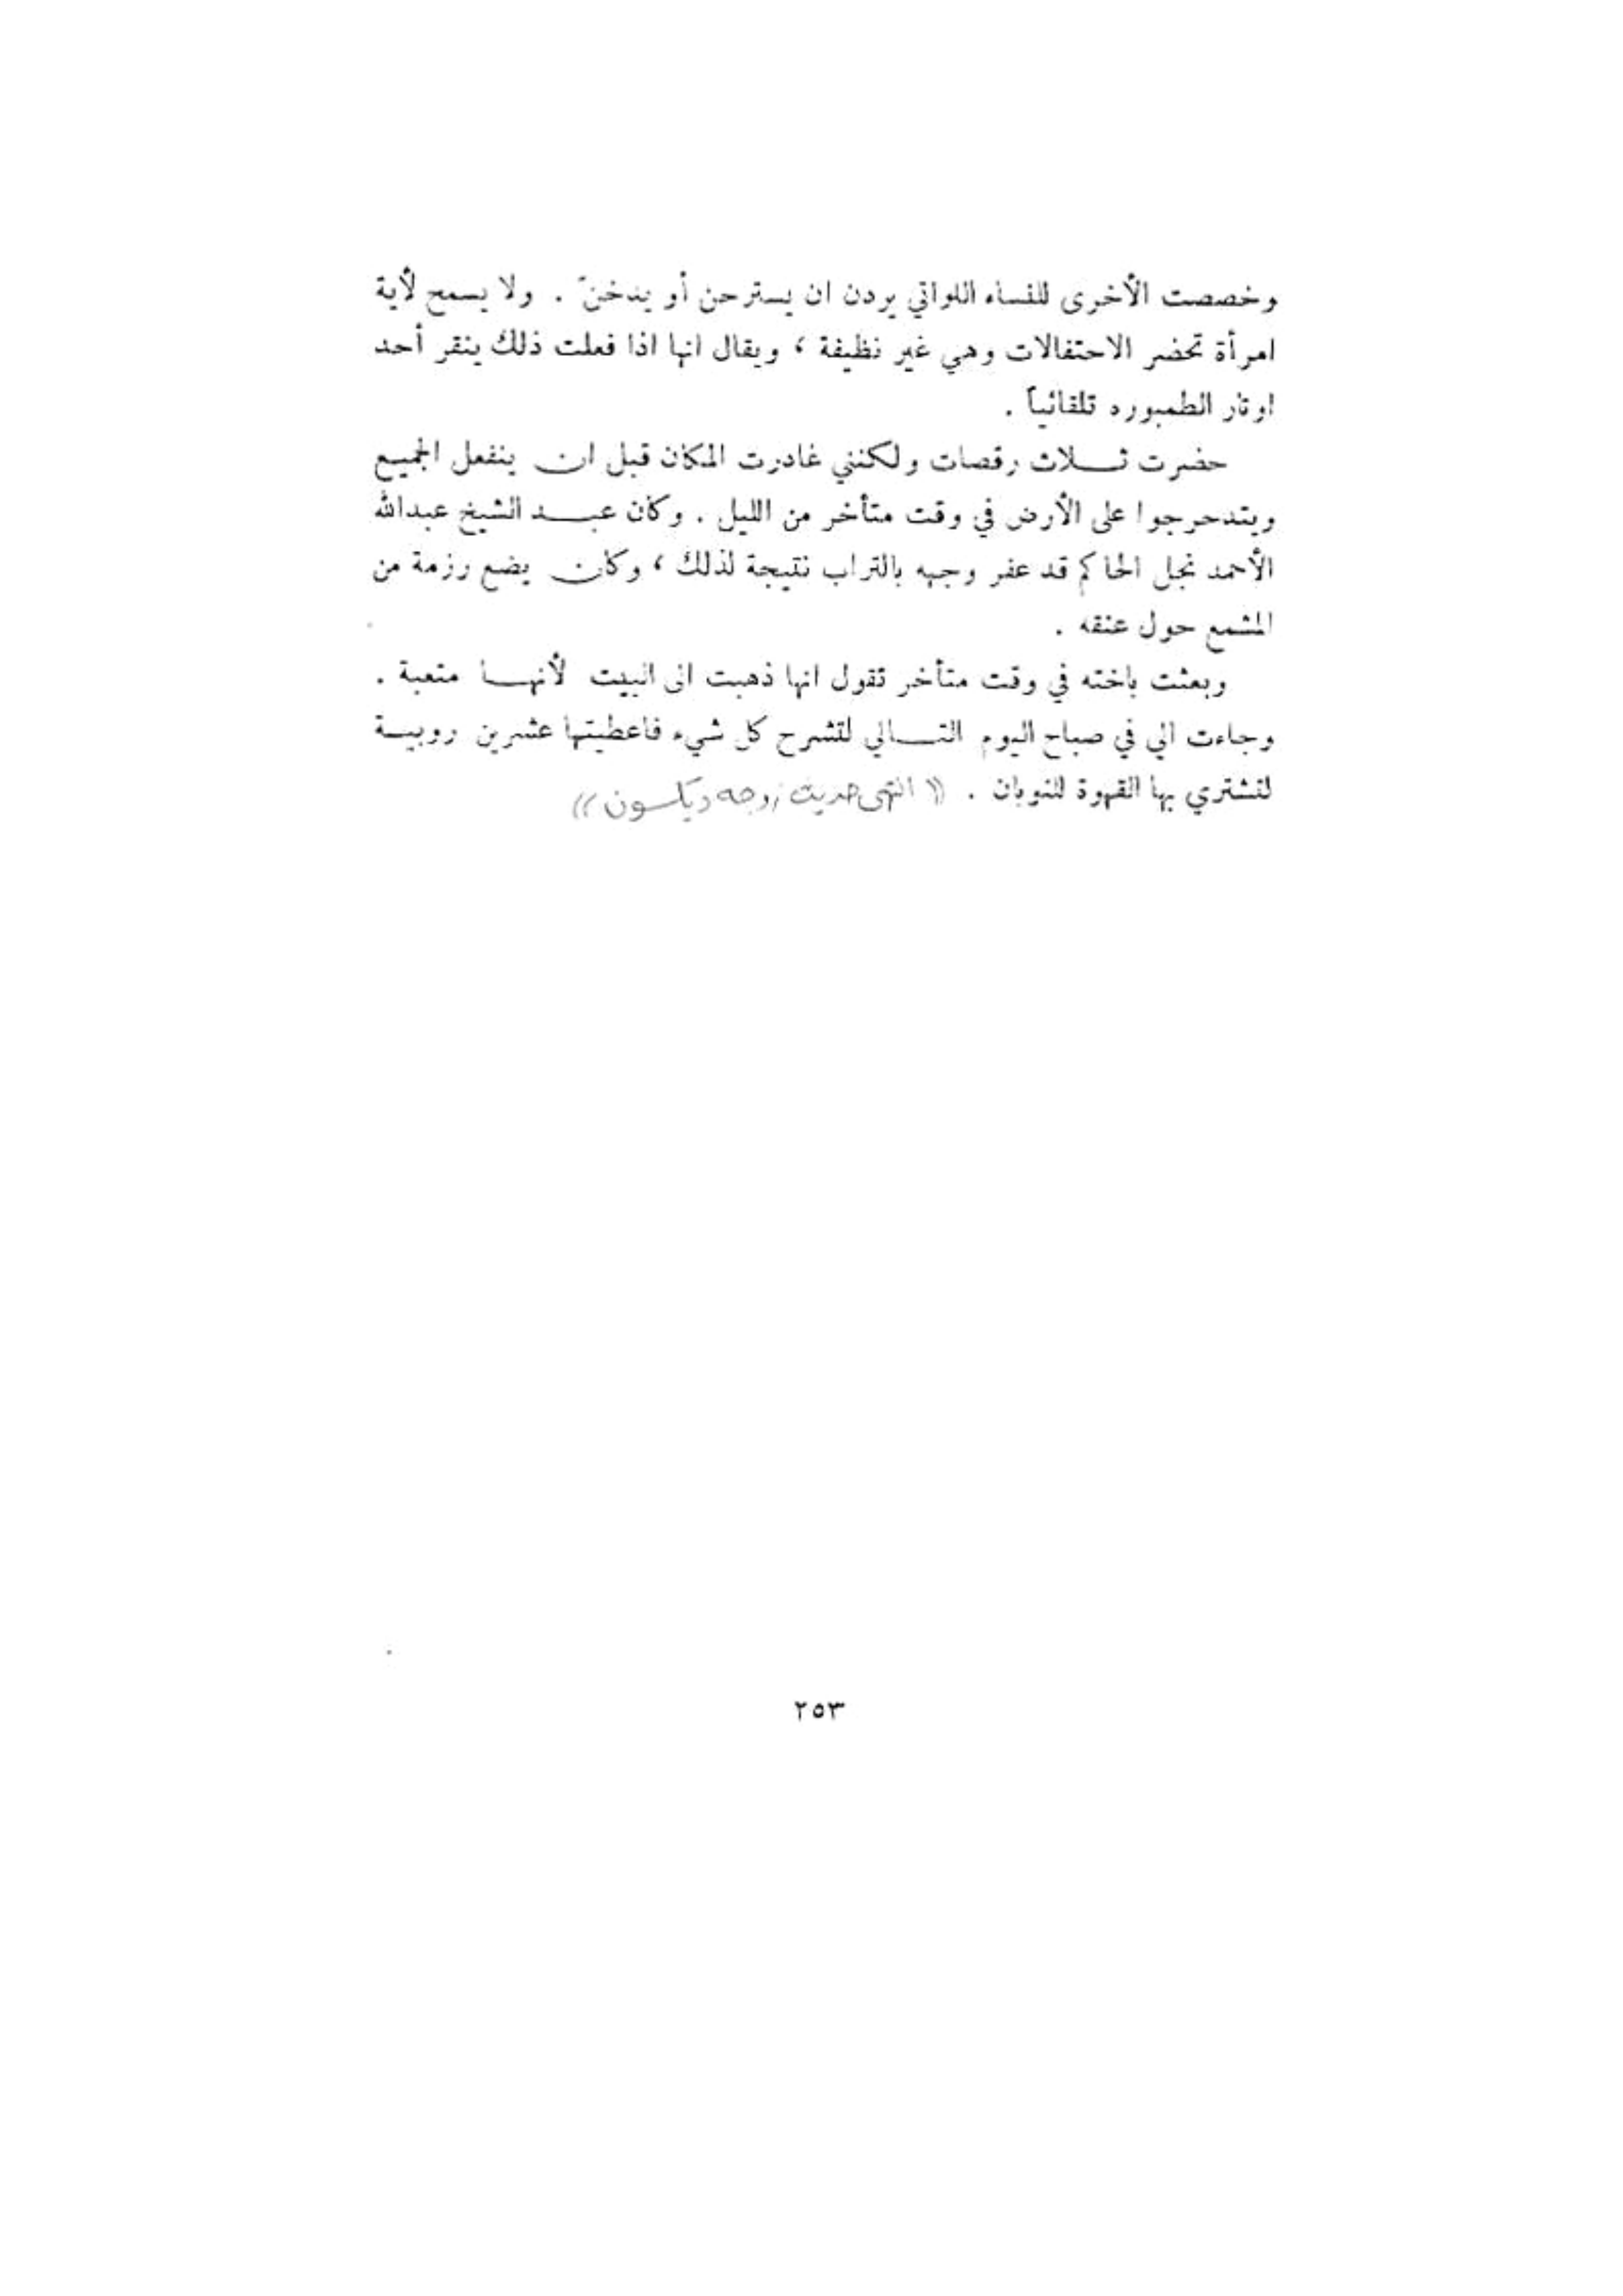 وخصصت الأخرى للنساء اللواتي يردن ان يسترحن أو يدخنّ . ولا يسمح لأية
امرأة تحضر الاحتفالات وهي غير نظيفة ، ويقال انها اذا فعلت ذلك ينقر أحد
اوتار الطمبوره تلقائياً .
حضرت ثـــلاث رقصات ولكنني غادرت المكان قبل ان ينفعل الجميع
ويتدحرجوا على الأرض في وقت متأخر من الليل . وكان عبـــد الشيخ عبدالله
الأحمد نجل الحاكم قد عفر وجهه بالتراب نتيجة لذلك ، وكان يضع رزمة من
المشمع حول عنقه .
وبعثت باخته في وقت متأخر تقول انها ذهبت الى البيت لأنهـــا متعبة .
وجاءت الي في صباح اليوم التـــالي لتشرح كل شيء فاعطيتها عشرين روبيـــة
لتشتري بها القهوة للنوبان . (( انتهى حديث زوجه ديكسون ))
٢٥٣